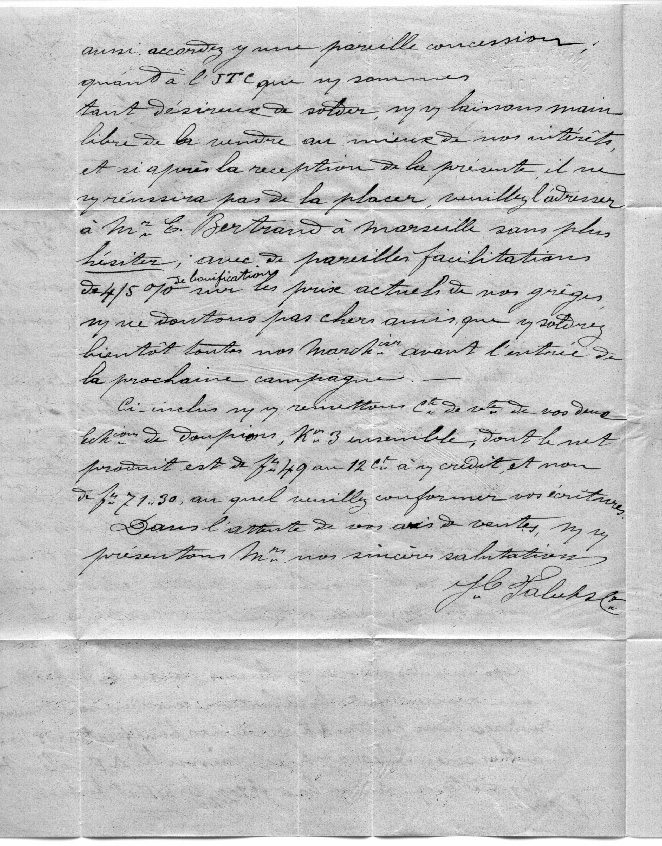 aussi accordez y une pareille concession;
quand à l'JTC que ny sommes
tant désireux de solder, ny y laissons main
libre de la vendre au mieux de nos intérêts,
et si après la reception de la présente, il ne
y réussira pas de la placer, veuillez l'adresser
à Mr. C. Bertrand à Marseille sans plus
hésiter; avec de pareilles facilitations
de 4/5 % de bonification sur les prix actuels de nos grèges,
ny ne doutons pas chers amis, que y solderez
bientôt toutes nos March.ises avant l'entrée de
la prochaine campagne. —
Ci-inclus ny y remettons Cte. de vte. de vos deux
Echons de doupions, Kos. 3 ensemble, dont le net
produit est de frs. 49 au 12 Ct. à y crédit, et non
de frs. 71.30, au quel veuillez conformer vos écritures.
Dans l'attente de vos avis de ventes, ny y
présentons Mrs. nos sincères salutations